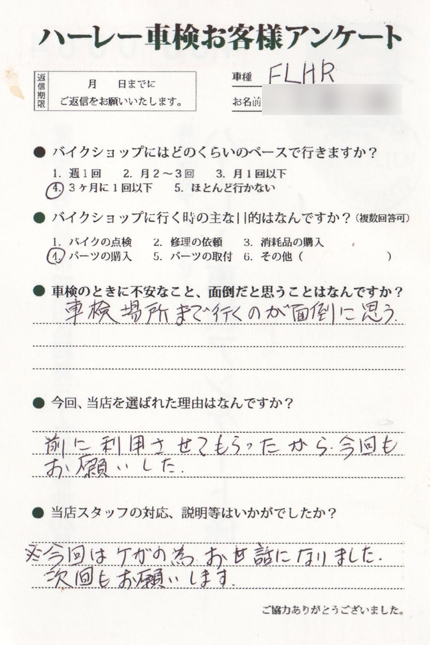 ハーレー車検お客様アンケート
返信期限
月 日までに
ご返信をお願いいたします。
車種 FLHR
お名前
● バイクショップにはどのくらいのペースで行きますか？
1. 週1回 2. 月2～3回 3. 月1回以下
4. 3ヶ月に1回以下 5. ほとんど行かない
● バイクショップに行く時の主な目的はなんですか？（複数回答可）
1. バイクの点検 2. 修理の依頼 3. 消耗品の購入
4. パーツの購入 5. パーツの取付 6. その他（ ）
● 車検のときに不安なこと、面倒だと思うことはなんですか？
車検場所まで行くのが面倒に思う.
● 今回、当店を選ばれた理由はなんですか？
前に利用させてもらったから.今回も
お願いした.
● 当店スタッフの対応、説明等はいかがでしたか？
※今回はケガの為お世話になりました.
次回もお願いします.
ご協力ありがとうございました。